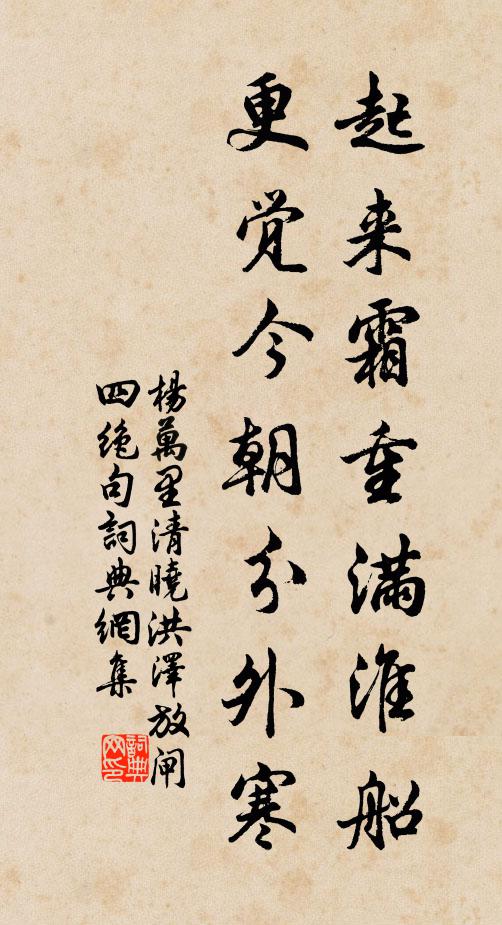 起来霜重满淮船
更觉今朝分外寒
楊萬里清曉洪澤放闸
四绝句詞典網集
詞典网印